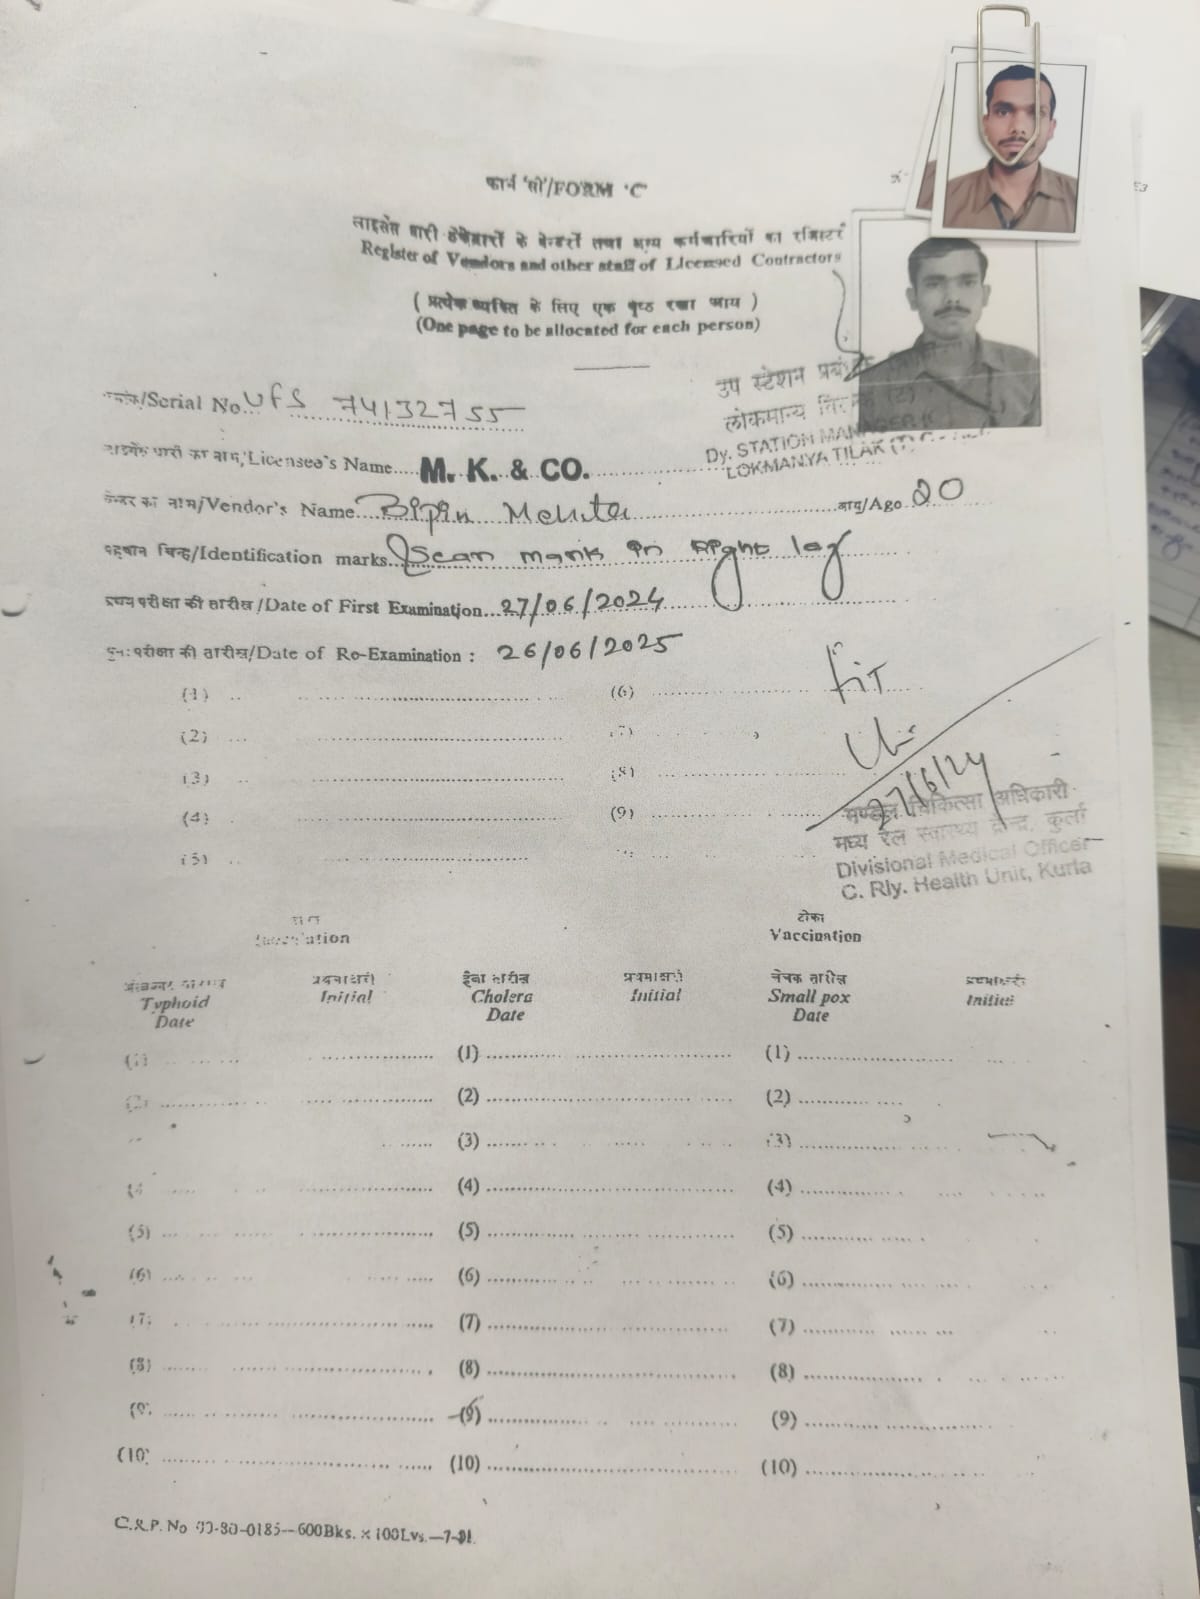 फार्म 'सी'/FORM 'C'
लाइसेंस धारी ठेकेदारों के वेन्डरों तथा अन्य कर्मचारियों का रजिस्टर
Register of Vendors and other staff of Licensed Contractors
( प्रत्येक व्यक्ति के लिए एक पृष्ठ रखा जाय )
(One page to be allocated for each person)
उप स्टेशन
लोकमान्य
Dy. STATION MANAGER
LOKMANYA TILAK (T)
/Serial No UFS 74132755
/Licensee's Name M. K. & CO.
वेन्डर का नाम/Vendor's Name Bipin Mehta आयु/Age 20
पहचान चिन्ह/Identification marks Scar mark in Right leg
प्रथम परीक्षा की तारीख/Date of First Examination 27/06/2024
पुनः परीक्षा की तारीख/Date of Re-Examination : 26/06/2025
(1) (6) fit
(2) (7)
(3) (8) 27/6/24
(4) (9)
(5)
मण्डल चिकित्सा अधिकारी
मध्य रेल स्वास्थ्य केन्द्र, कुर्ला
Divisional Medical Officer
C. Rly. Health Unit, Kurla
टीका
Inoculation Vaccination
हैजा तारीख चेचक तारीख
Typhoid Initial Cholera Initial Small pox Initial
Date Date Date
(1) (1) (1)
(2) (2) (2)
(3) (3)
(4 (4) (4)
(5) (5) (5)
(6) (6) (6)
(7) (7) (7)
(8) (8) (8)
(9) (9) (9)
(10) (10) (10)
600Bks. x 100Lvs.